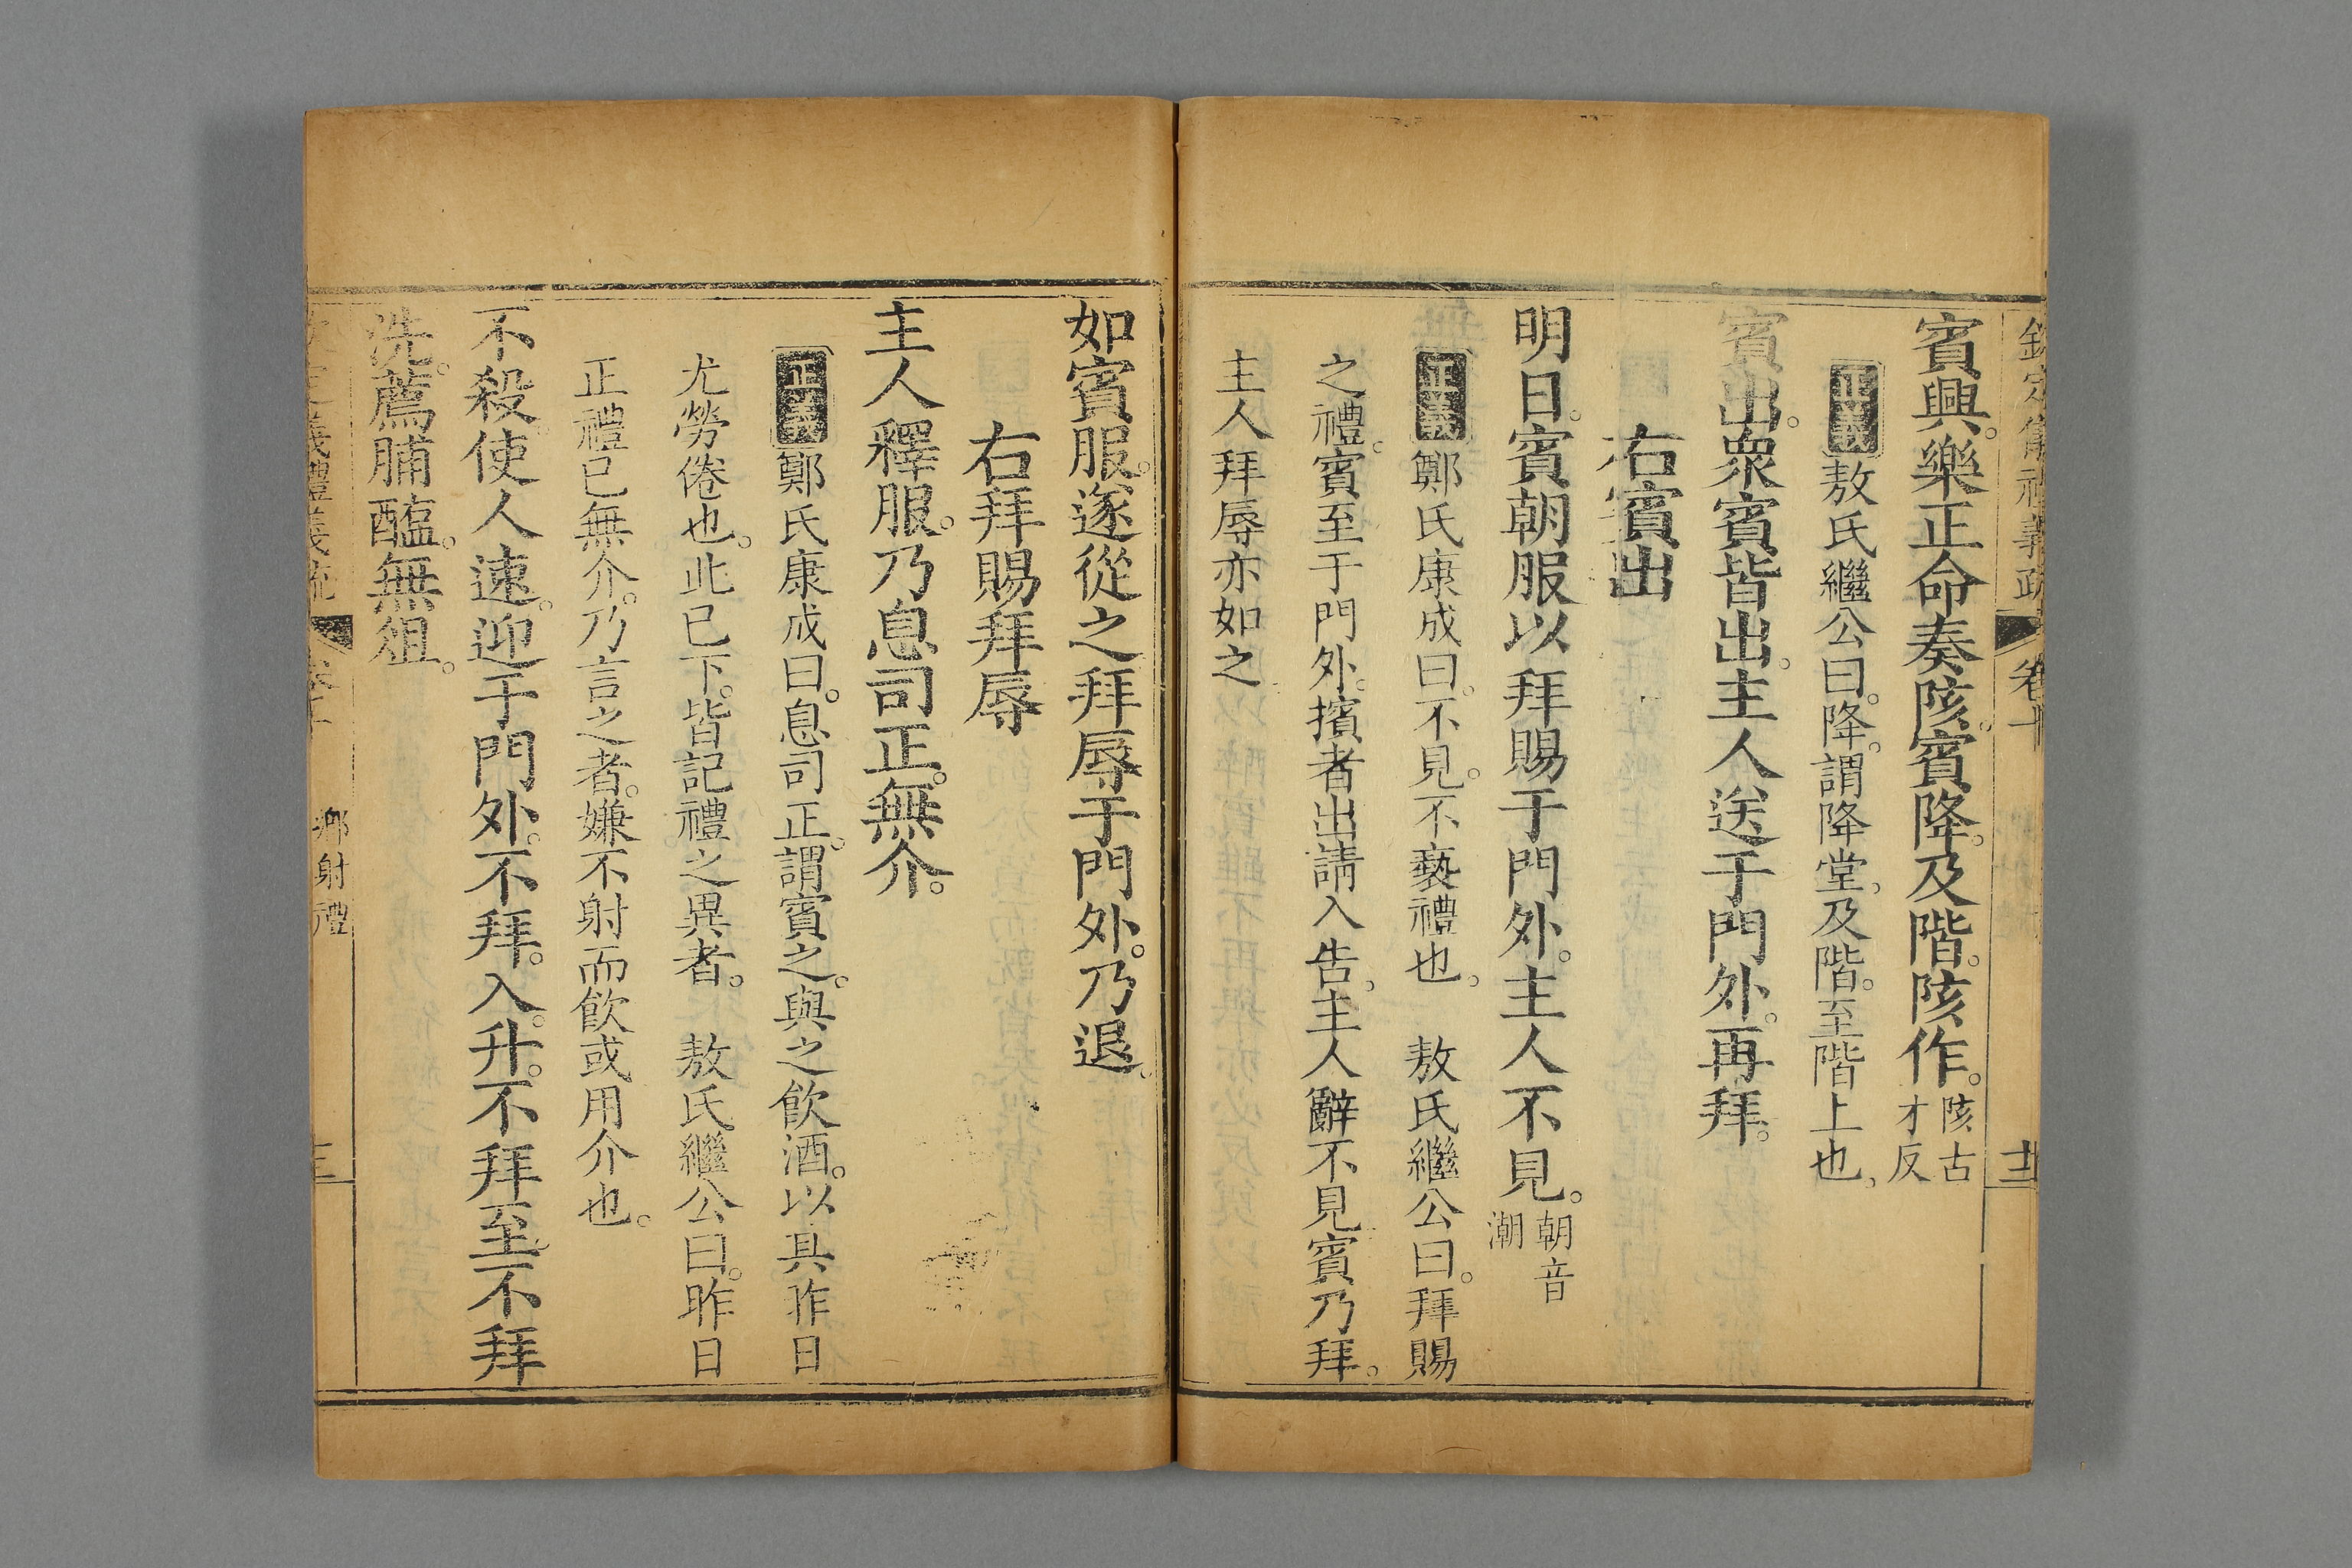 賓興。樂正命奏陔。賓降。及階。陔作。陔古才反
正義敖氏繼公曰。降。謂降堂、及階。至階上也、
賓出。衆賓皆出。主人送于門外。再拜。
右賓出
明日。賓朝服以拜賜于門外。主人不見。朝音潮
正義鄭氏康成曰。不見。不褻禮也、 敖氏繼公曰。拜賜
之禮。賓至于門外。擯者出請入告、主人辭不見賓乃拜。
主人拜辱亦如之
如賓服。遂從之拜辱于門外。乃退。
右拜賜拜辱
主人釋服。乃息司正。無介。
正義鄭氏康成曰。息司正。謂賓之。與之飲酒。以其昨日
尤勞倦也。此已下。皆記禮之異者。 敖氏繼公曰。昨日
正禮已無介。乃言之者。嫌不射而飲或用介也。
不殺。使人速。迎于門外。不拜。入。升。不拜至。不拜
洗。薦脯醢。無俎。
鄉射禮